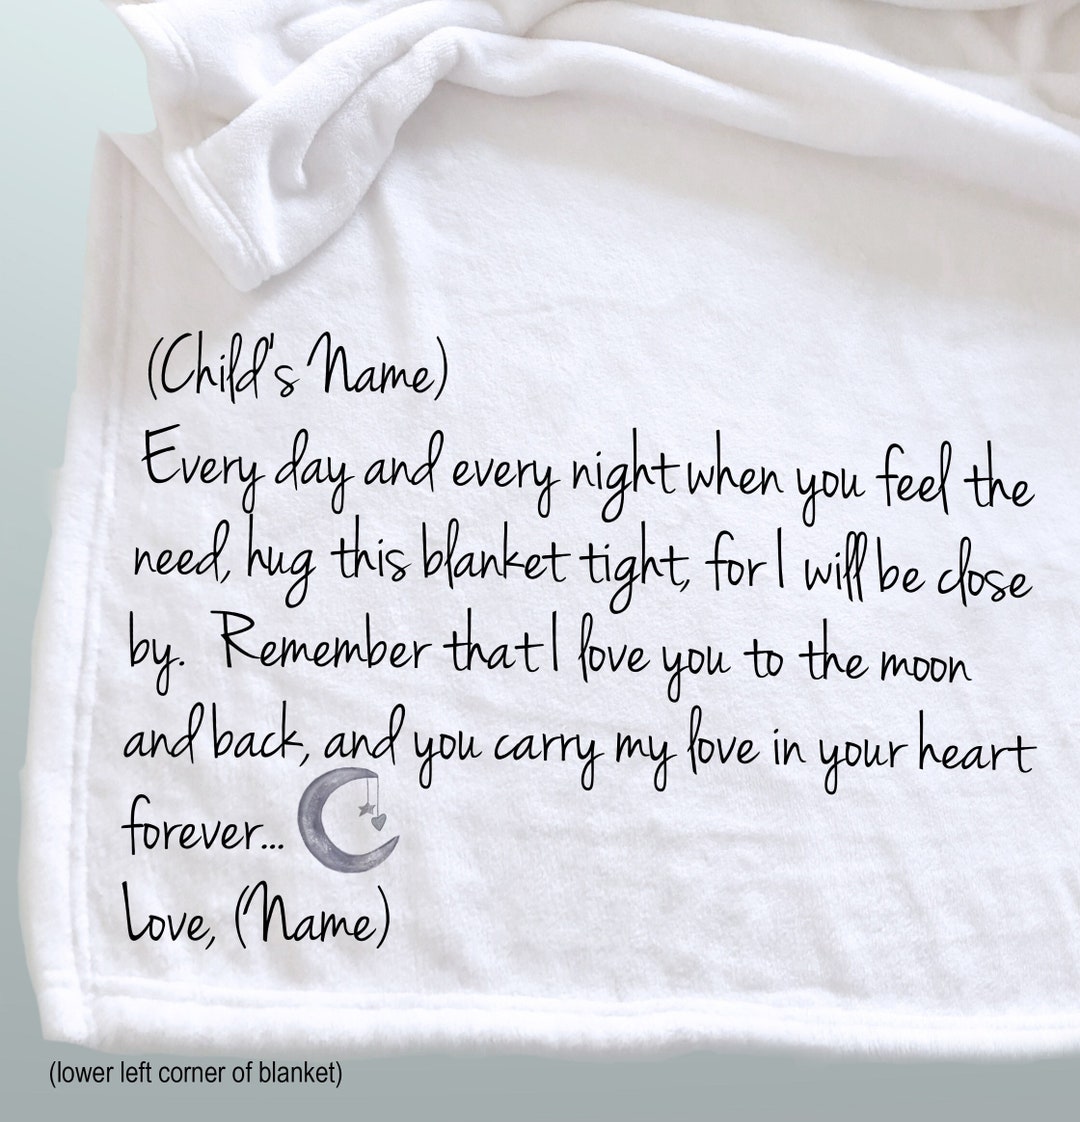 (Child's Name)
Every day and every night when you feel the
need, hug this blanket tight, for I will be close
by. Remember that I love you to the moon
and back, and you carry my love in your heart
forever...
Love, (Name)
(lower left corner of blanket)